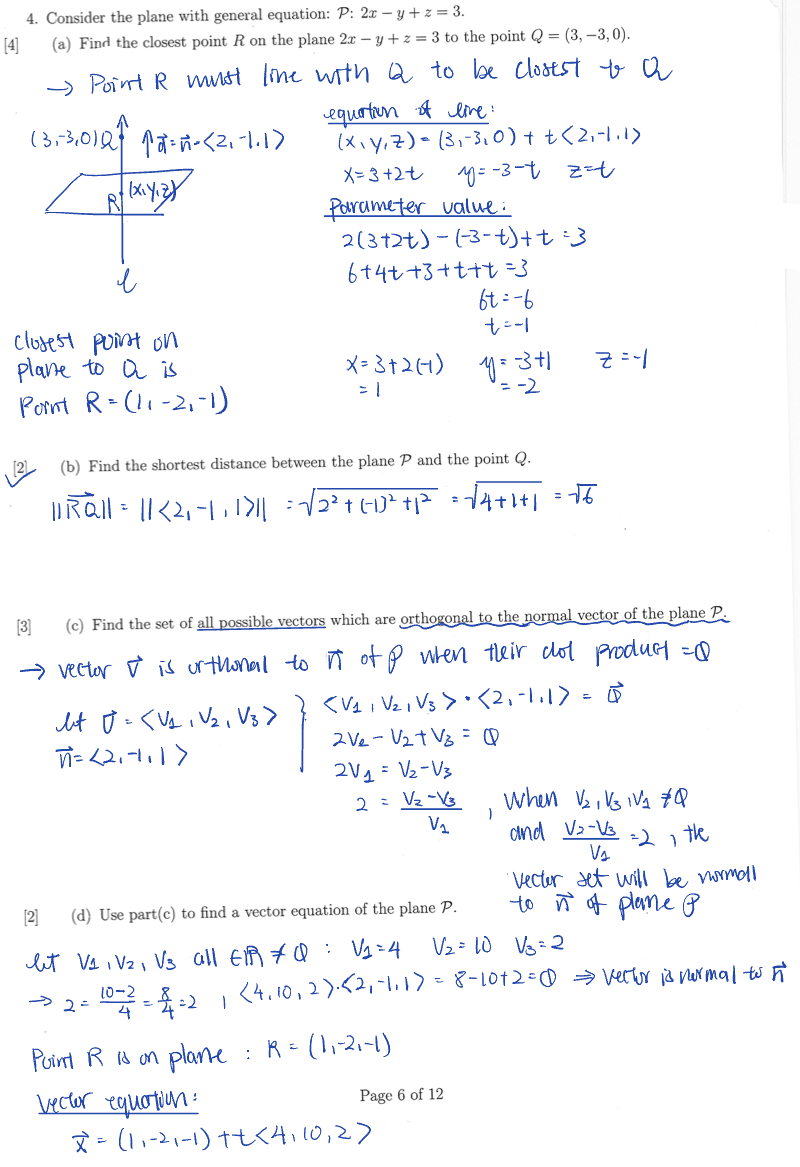 4. Consider the plane with general equation: P: 2x − y + z = 3.
[4] (a) Find the closest point R on the plane 2x − y + z = 3 to the point Q = (3, −3, 0).
→ Point R must line with Q to be closest to Q
equation of line:
(3,-3,0) Q ↑ d⃗ = n⃗ = <2,-1,1> (x,y,z) = (3,-3,0) + t<2,-1,1>
x = 3+2t y = -3-t z = t
R (x,y,z)
Parameter value:
2(3+2t) - (-3-t) + t = 3
6+4t+3+t+t = 3
6t = -6
l
t = -1
closest point on
plane to Q is x = 3+2(-1) y = -3+1 z = -1
= 1 = -2
Point R = (1, -2, -1)
[2] (b) Find the shortest distance between the plane P and the point Q.
||RQ⃗|| = ||<2,-1,1>|| = √2² + (-1)² + 1² = √4+1+1 = √6
[3] (c) Find the set of all possible vectors which are orthogonal to the normal vector of the plane P.
→ vector v⃗ is orthonal to n⃗ of P when their dot product = 0
let v⃗ = <V1, V2, V3> } <V1, V2, V3> · <2,-1,1> = 0⃗
n⃗ = <2,-1,1> 2V1 - V2 + V3 = 0
2V1 = V2 - V3
2 = (V2 - V3)/V1 , when V2, V3, V1 ≠ 0
and (V2 - V3)/V1 = 2 , the
vector set will be normal
to n⃗ of plane P
[2] (d) Use part(c) to find a vector equation of the plane P.
let V1, V2, V3 all ∈ ℝ ≠ 0 : V1 = 4 V2 = 10 V3 = 2
→ 2 = (10-2)/4 = 8/4 = 2 , <4,10,2>·<2,-1,1> = 8-10+2 = 0 ⇒ vector is normal to n⃗
Point R is on plane : R = (1,-2,-1)
Vector equation:
Page 6 of 12
x⃗ = (1,-2,-1) + t<4,10,2>